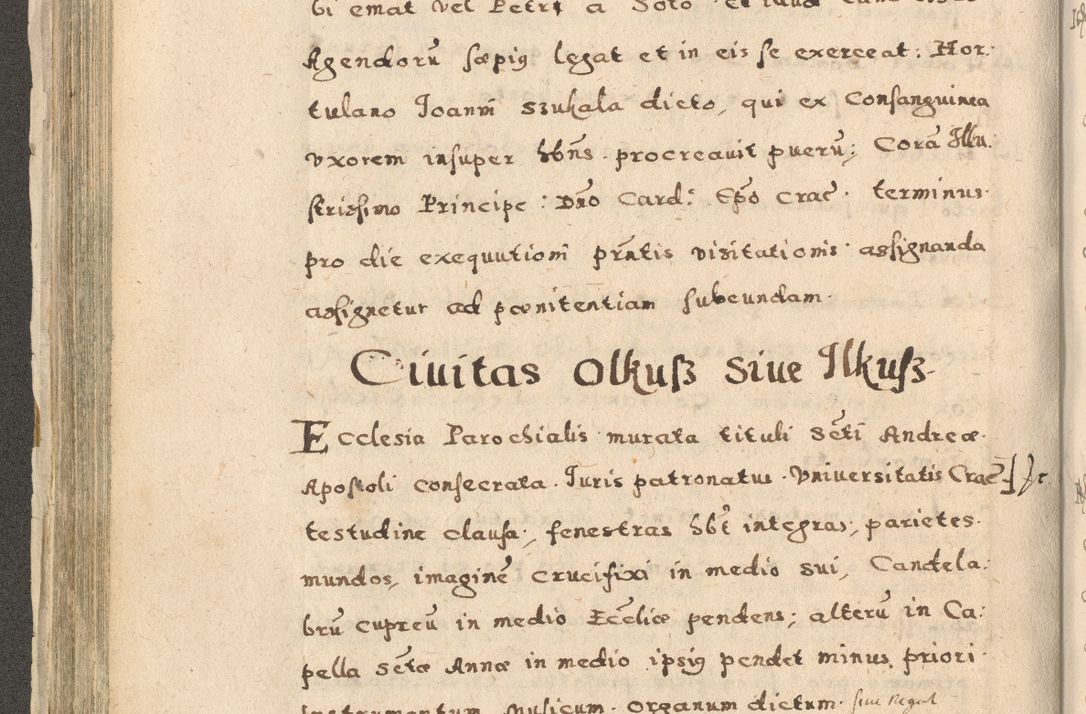 bi emat vel Petri a Soto
Agendorū sæpiꝰ legat et in eis se exerceat; Hor:
tulano Joanni Szuhala dicto, qui ex Consanguinea
vxorem insuper hb̄ns procreauit puerū; Corā Illu.
strissimo Principe: Dn̄o Card: Ep̄o Crac̄ terminus
pro die exequutioni pn̄tis visitationis assignanda
assignetur ad pœnitentiam subeundam.
Ciuitas Olkuß siue Ilkuß.
Ecclesia Parochialis murata tituli Sc̄ti Andreæ
Apostoli consecrata. Juris patronatus Vniversitatis Crac̄
testudine clausa, fenestras hb̄t integras, parietes
mundos, imaginē Crucifixi in medio sui, Candela:
brū cupreū in medio Ecc̄liæ pendens; alterū in Ca:
pella Sc̄tæ Annæ in medio ipsiꝰ pendet minus priori
instrumentum Musicum Organum dictum siue Regal